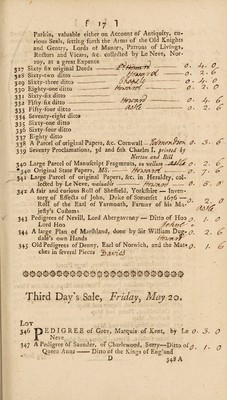 [ 17 ]
Parkin, valuable either on Account of Antiquity, cu-
rious Seals, setting forth the Arms of the Old Knights
and Gentry, Lords of Manors, Patrons of Livings,
Rectors and Vicars, &c. collected by Le Neve, Nor-
roy, at a great Expence
327 Sixty six original Deeds 0. 4. 0
328 Sixty-two ditto 0. 2. 6
329 Sixty-three ditto 0. 4. 0
330 Eighty-one ditto Howard 0. 2. 0
331 Sixty ditto
332 Fifty-six ditto Howard 0. 4. 6
333 Fifty-four ditto Astle 0. 2. 6
334 Seventy-eight ditto
335 Sixty-one ditto
336 Sixty-four ditto
337 Eighty ditto
338 A Parcel of original Papers, &c. Cornwall 0. 3. 6
339 Seventy Proclamations, 3d and 6th Charles I. printed by
Norton and Bill
340 Large Parcel of Manuscript Fragments, on vellum Astle 0. 2. 6
*340 Original State Papers, MS. Howard 0. 7. 6
341 Large Parcel of original Papers, &c. in Heraldry, col-
lected by Le Neve, valuable Howard 0. 5. 0
342 A fair and curious Roll of Sheffield, Yorkshire — Inven-
tory of Effects of John, Duke of Somerset 1676 — 0. 2. 0
Roll of the Earl of Yarmouth, Farmer of his Ma- Astle
jesty's Customs
343 Pedigrees of Nevill, Lord Abergavenny — Ditto of Hoo 0. 1. 0
Lord Hoo
344 A large Plan of Marshland, done by Sir William Dug-
dale's own Hands Howard 0. 2. 6
345 Old Pedigrees of Denny, Earl of Norwich, and the Mat-
ches in several Pieces Davies 0. 1. 6
Third Day's Sale, Friday, May 20.
LOT
346 PEDIGREE of Grey, Marquis of Kent, by Le 0. 3. 0
Neve
347 A Pedigree of Saunder, of Charlewood, Surry—Ditto of 0. 1. 0
Queen Anna — Ditto of the Kings of England
D 348 A